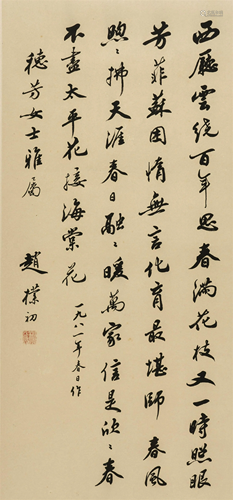 西廳雲繞百年思春滿花枝又一時照眼
芳菲蘇困惰無言化育最堪師春風
煦〻拂天涯春日融〻暖萬家信是欣〻春
不盡太平花接海棠花
一九八一年春日作
穗芳女士雅屬
趙樸初